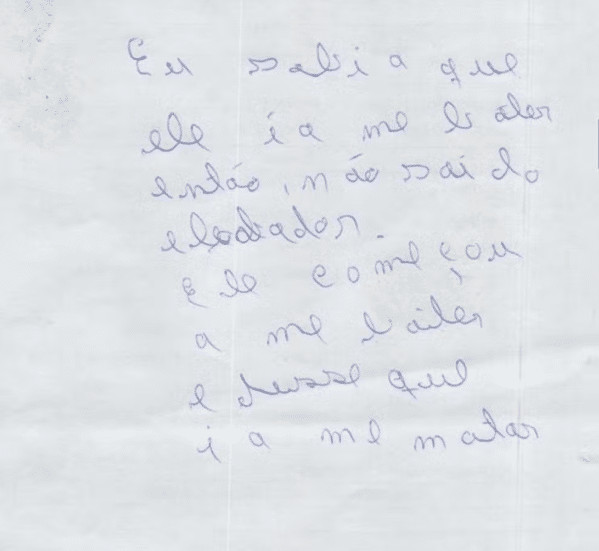 Eu sabia que
ele ia me bater
então, não sai do
elevador.
Ele começou
a me bater
e disse que
ia me matar